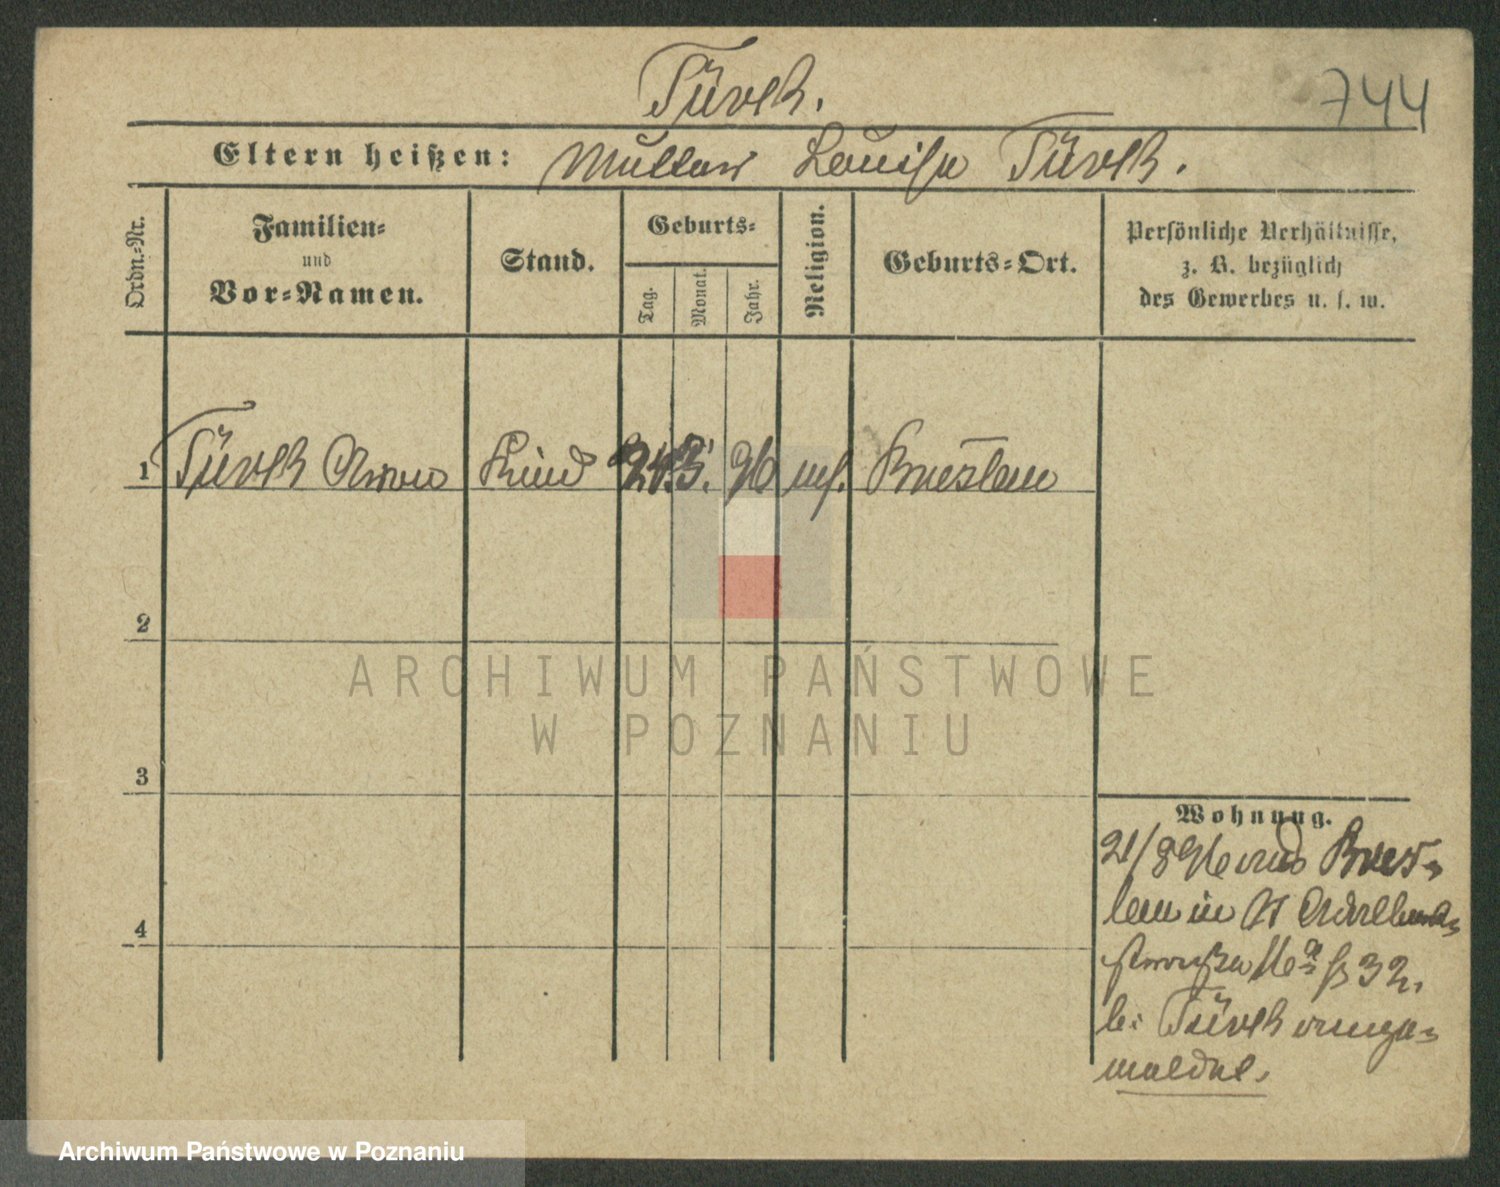 Türk.
744
Eltern heißen: Mutter Louise Türk.
Ordn.-Nr.
Familien- und Vor-Namen.
Stand.
Geburts-
Tag.
Monat.
Jahr.
Religion.
Geburts-Ort.
Persönliche Verhältnisse,
z. B. bezüglich
des Gewerbes u. s. w.
1 Türk Anna Kind 24. 3. 96 ev. Breslau
2
3
4
ARCHIWUM PAŃSTWOWE
W POZNANIU
Wohnung.
21/8 96 aus Bres-
lau in St
straße 32.
bei Türk ange-
meldet.
Archiwum Państwowe w Poznaniu